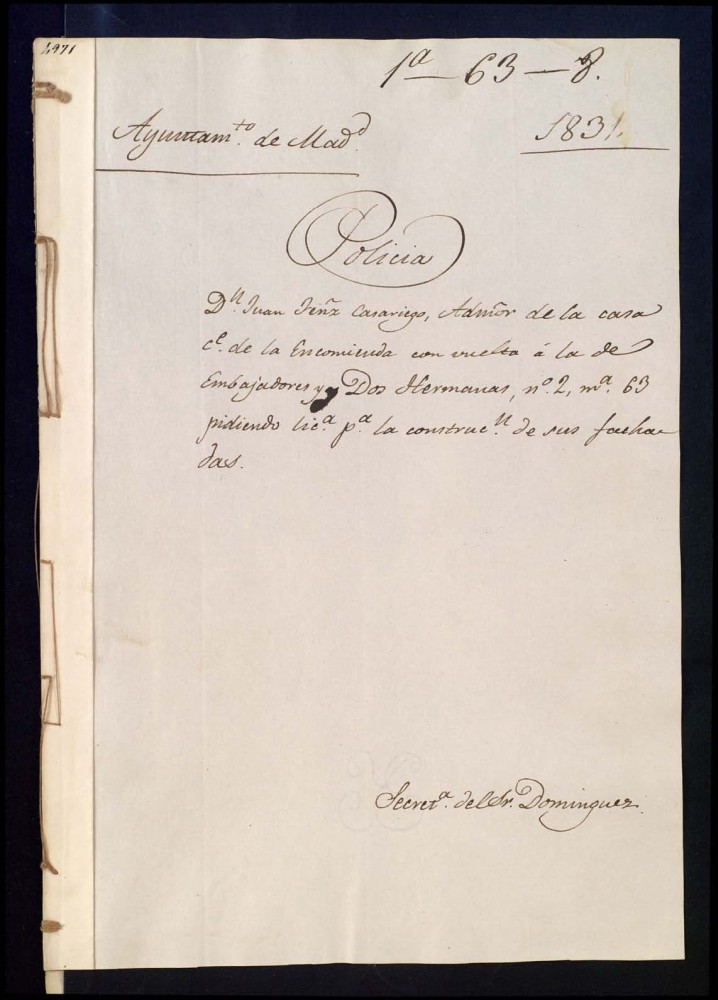 4971
1ª — 63 — 8.
Ayuntamto. de Madd.
1831.
Policia
Dn. Juan Fernz Casariego, Admor de la casa
ce. de la Encomienda con vuelta á la de
Embajadores y Dos Hermanas, nº. 2, mª. 63
pidiendo lica. pa. la construcn. de sus facha
das.
Secreta. del Sr. Dominguez.